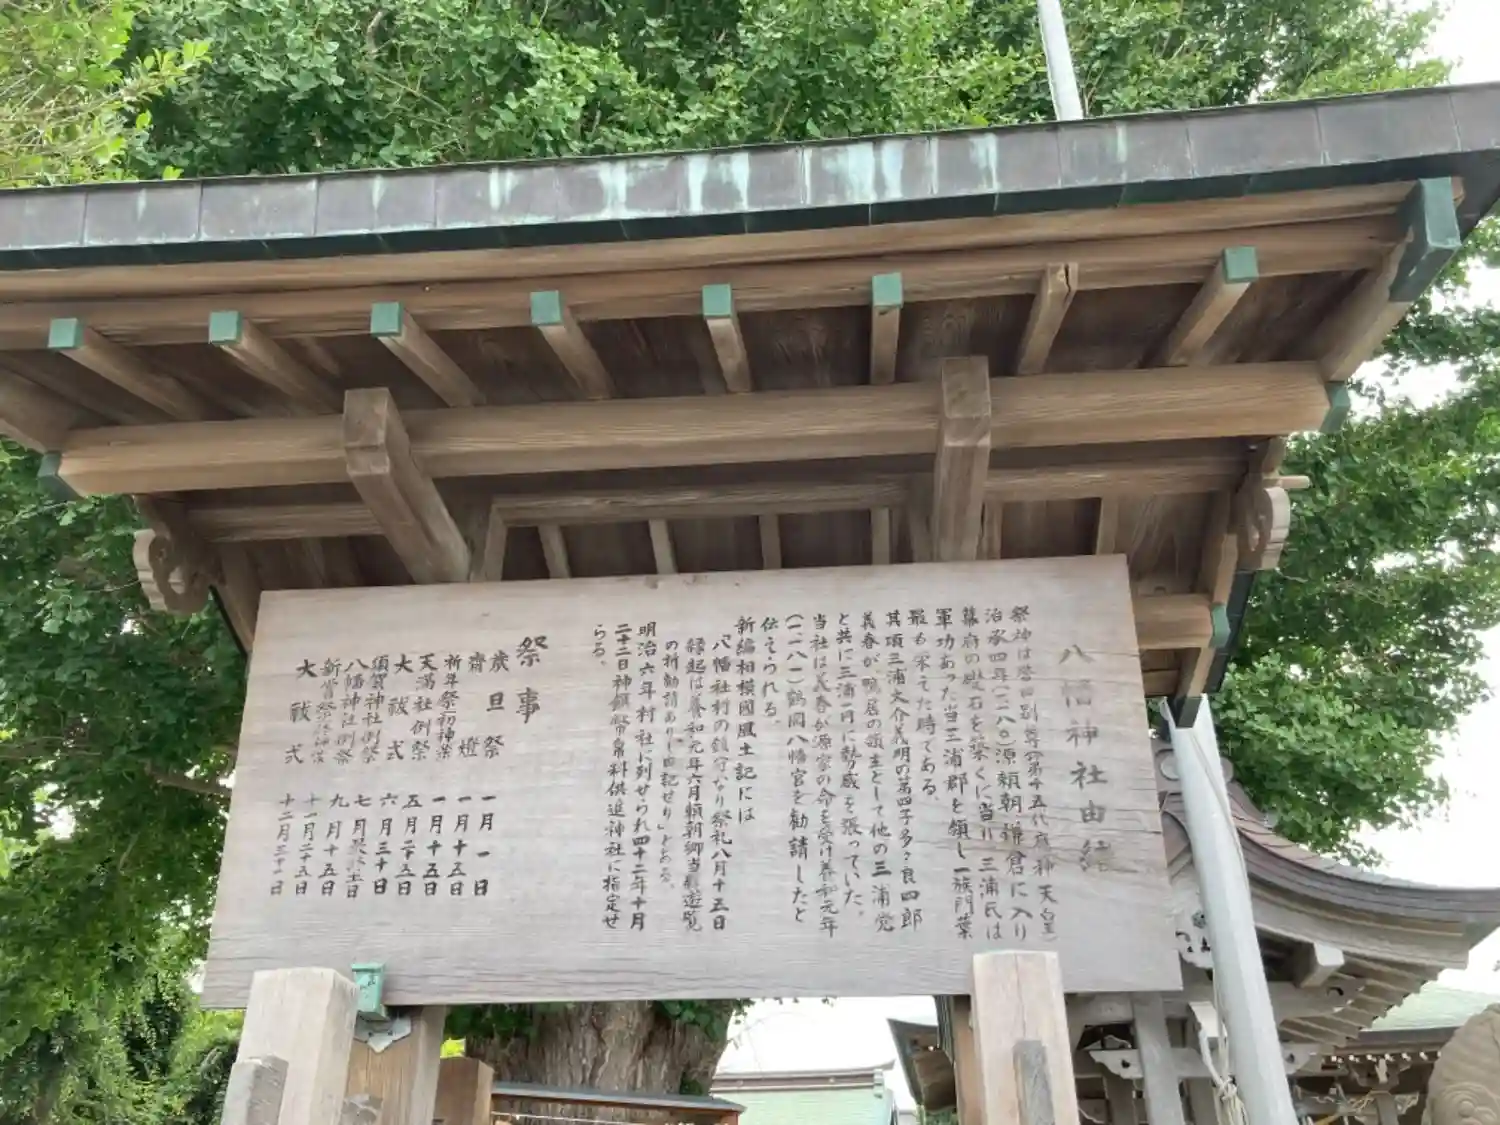 八幡神社由緒
祭神は誉田別尊(第十五代応神天皇)
治承四年(一一八〇)源頼朝鎌倉に入り
幕府の礎石を築くに当り三浦氏は
軍功あった当三浦郡を領し一族門葉
最も栄えた時である。
其頃三浦大介義明の第四子多々良四郎
義春が鴨居の領主として他の三浦党
と共に三浦一円に勢威を張っていた。
当社は義春が源家の命を受け養和元年
(一一八一)鶴岡八幡宮を勧請したと
伝えられる。
新編相模國風土記には
「八幡社村の鎮守なり祭礼八月十五日
縁起は養和元年六月頼朝郷当邑遊覧
の祈勧請ありし由記せり」とある。
明治六年村社に列せられ四十二年十月
二十二日神饌幣帛料供進神社に指定せ
らる。
祭事
歳旦祭 一月一日
齋燈 一月十五日
祈年祭 初神楽 一月十五日
天満社例祭 五月二十五日
大祓式 六月三十日
須賀神社例祭 七月 土日
八幡神社例祭 九月十五日
新嘗祭 十一月二十五日
大祓式 十二月三十一日